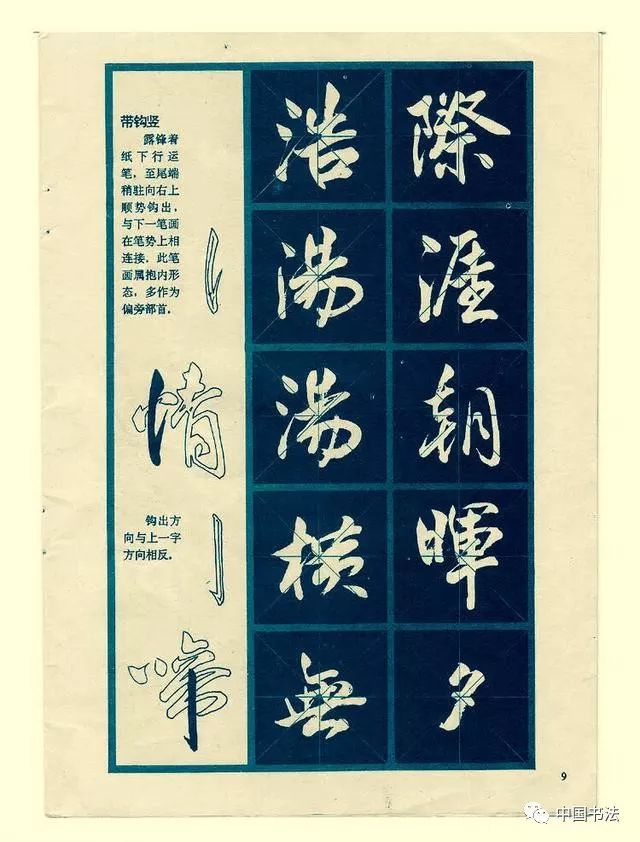 带钩竖
露锋着
纸下行运
笔，至尾端
稍驻向右上
顺势钩出，
与下一笔画
在笔势上相
连接．此笔
画属抱内形
态，多作为
偏旁部首．
情
钩出方
向与上一字
方向相反．
啼
浩湯湯横無
際涯朝暉夕
9
中国书法